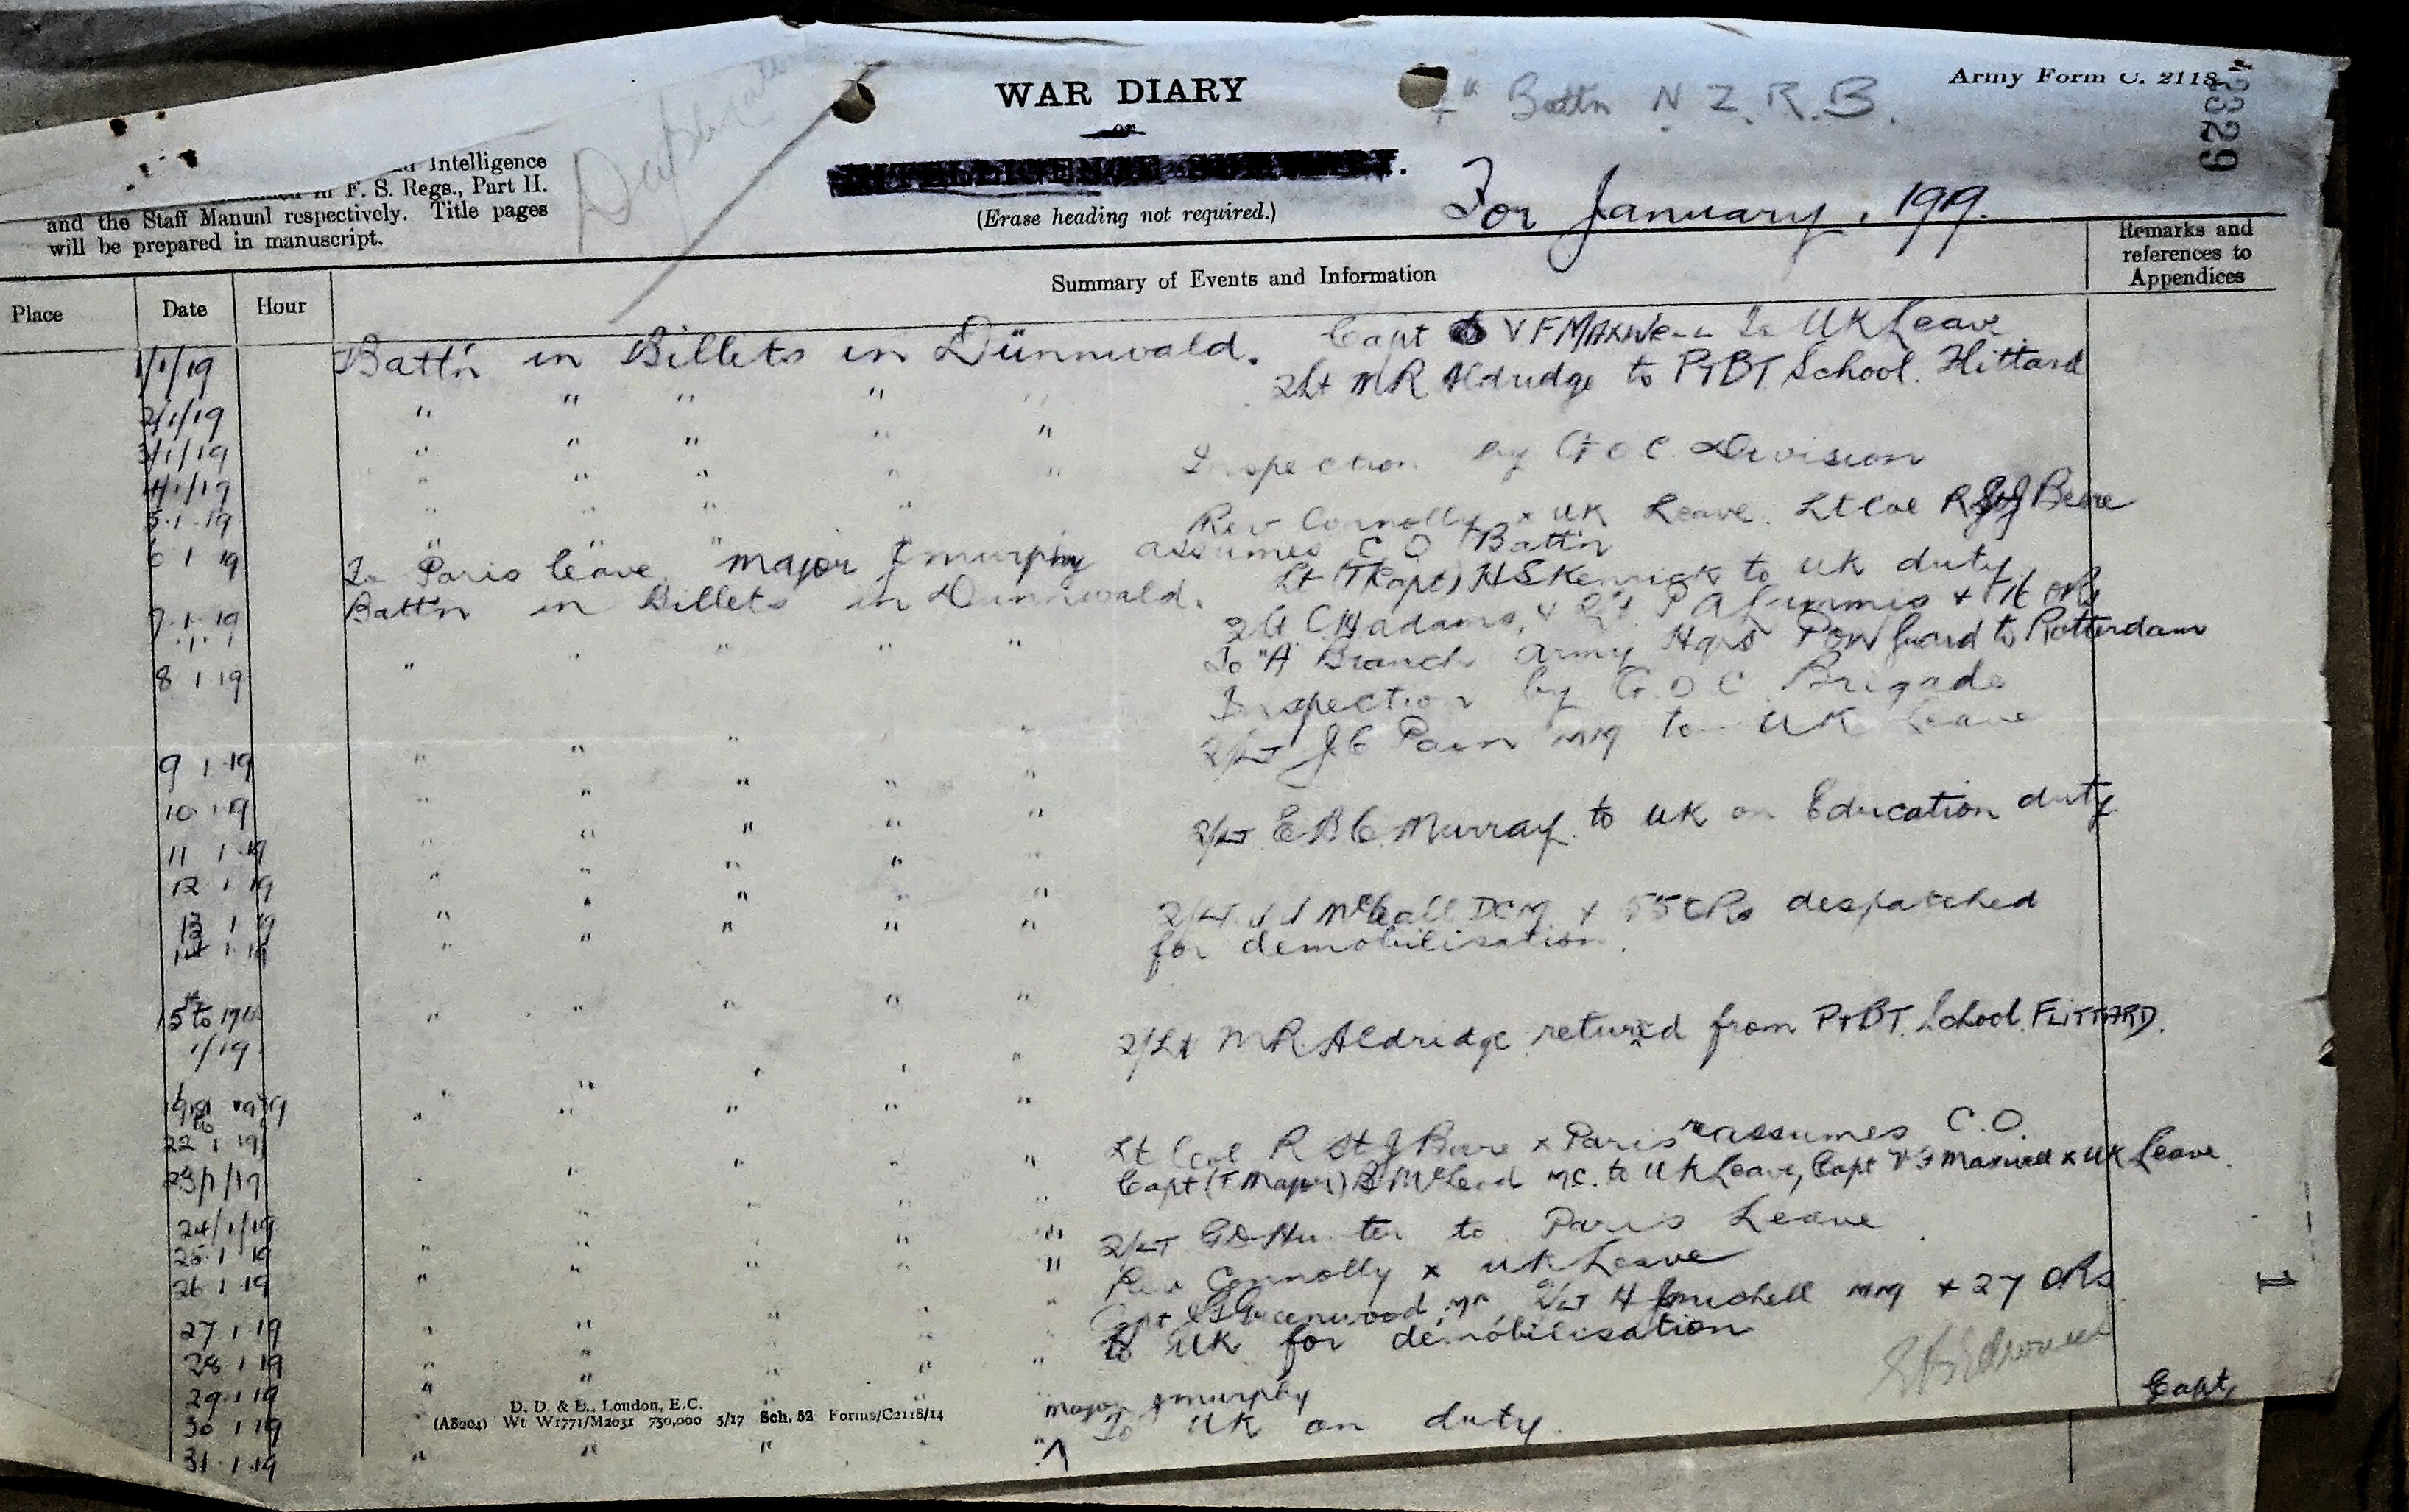 Duplicate
WAR DIARY
or
(Erase heading not required.)
Army Form C. 2118
Battn N.Z.R.B.
2329
For January, 1919.
Intelligence
F. S. Regs., Part II.
and the Staff Manual respectively. Title pages
will be prepared in manuscript.
Place Date Hour Summary of Events and Information Remarks and references to Appendices
1/1/19 Batt'n in Billets in Dünnwald. Capt V F Maxwell To UK Leave
2Lt M R Aldridge to P&BT School. Hittard
2/1/19 " " " " "
3/1/19 " " " " "
4/1/19 " " " " " Inspection by G O C. Division
5.1.19 " " " "
6 1 19 " " " Rev Connolly x UK Leave. Lt Col R St J Beere
To Paris leave. Major murphy assumes C O Battn
7.1.19 Batt'n in Billets in Dunnwald. Lt (T/Capt) H S Kenrick to UK duty
2Lt C H Adams, &
To "A" Branch Army Hqrs POW Guard to Rotterdam
8 1 19 " " " " "
Inspection by G.O.C. Brigade
9 1 19 " " " " 2/Lt J C MM to UK Leave
10 1 19 " " " " "
11 1 19 " " " " " 2/Lt E B C Murray to UK on Education duty
12 1 19 " " " " "
13 1 19 " " " " " 2/Lt McCall DCM + 55 ORs despatched
14 1 19 " " " " " for demobilisation.
15th to 17th
1/19 " " " " " 2/Lt M R Aldridge returned from P&BT. School. FLITTARD.
22 1 19 " " " " " Lt Col R St J Beere x Paris reassumes C.O.
23/1/19 " " " Capt (T Major) McLeod MC. to UK Leave, Capt V F Maxwell x UK Leave.
24/1/19 " " " 2/Lt G D Hunter to Paris Leave
25 1 19 " " " " " Rev Connolly x UK Leave
26 1 19 " " " " Capt Greenwood MC 2/Lt H J Michell MM + 27 ORs
27 1 19 " " " " to UK for demobilisation
28 1 19 " " " "
29 1 19 " " " "
30 1 19 " " Major J murphy
To UK on duty.
31 1 19 " " " " "
Capt,
1
D. D. & E., London, E.C.
(A8204) Wt W1771/M2031 750,000 5/17 Sch. 52 Forms/C2118/14